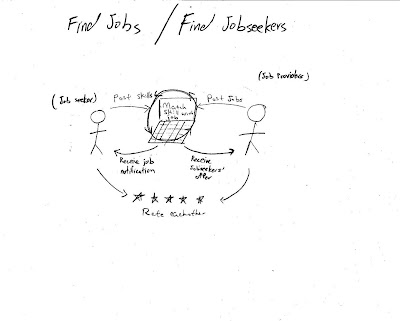 Find Jobs / Find Jobseekers
(Job seeker)
Post skills
Match
skill with
job
Post Jobs
(Job Provider)
Receive job
notification
Receive
Jobseekers'
offer
Rate eachother